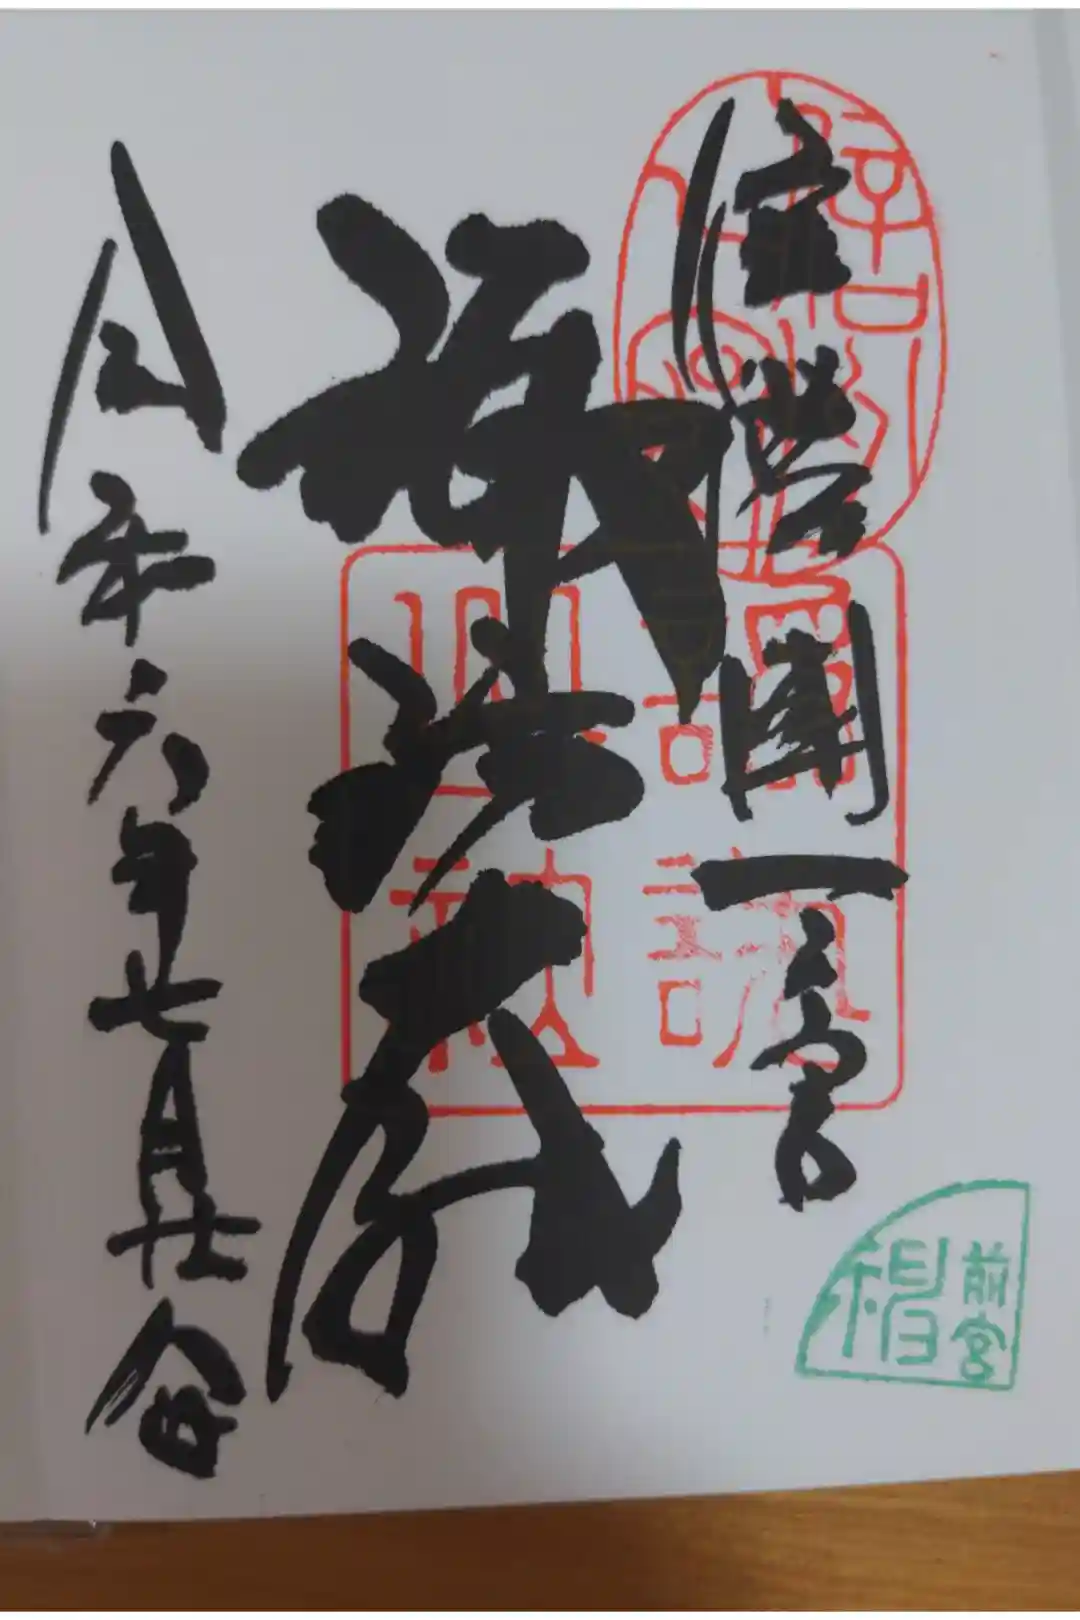 信濃國一之宮
諏訪大社
令和六年七月廿八日
諏訪
前宮